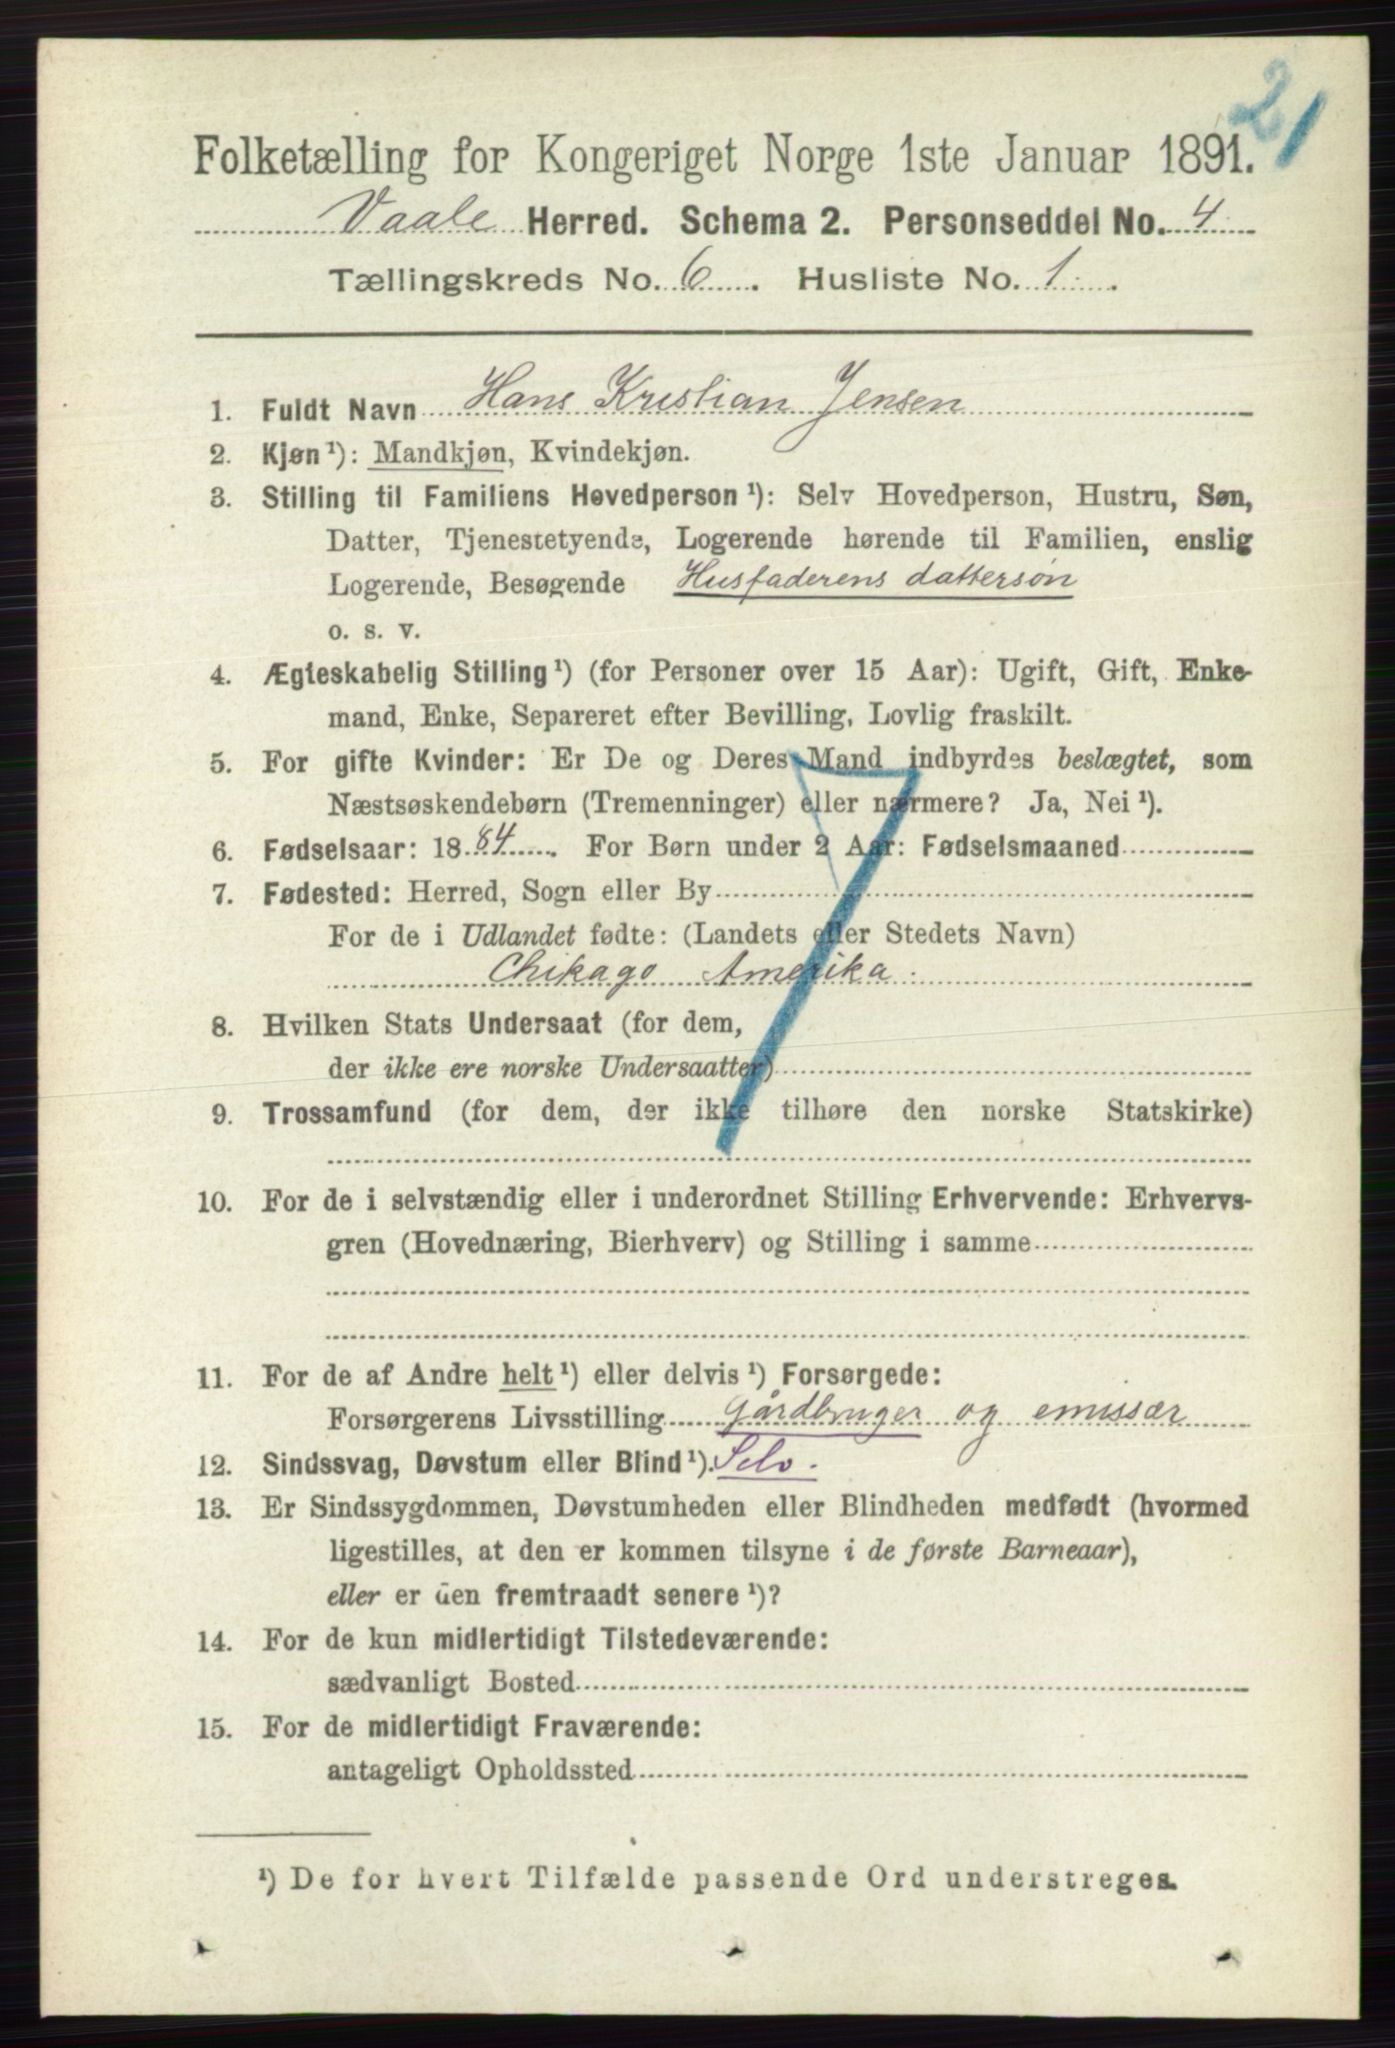 21
Folketælling for Kongeriget Norge 1ste Januar 1891.
Vaale Herred. Schema 2. Personseddel No. 4
Tællingskreds No. 6. Husliste No. 1.
1. Fuldt Navn Hans Kristian Jensen
2. Kjøn¹): Mandkjøn, Kvindekjøn.
3. Stilling til Familiens Hovedperson¹): Selv Hovedperson, Hustru, Søn,
Datter, Tjenestetyende, Logerende hørende til Familien, enslig
Logerende, Besøgende Husfaderens dattersøn
o. s. v.
4. Ægteskabelig Stilling¹) (for Personer over 15 Aar): Ugift, Gift, Enke-
mand, Enke, Separeret efter Bevilling, Lovlig fraskilt.
5. For gifte Kvinder: Er De og Deres Mand indbyrdes beslægtet, som
Næstsøskendebørn (Tremenninger) eller nærmere? Ja, Nei¹).
6. Fødselsaar: 1884. For Børn under 2 Aar: Fødselsmaaned
7. Fødested: Herred, Sogn eller By
For de i Udlandet fødte: (Landets eller Stedets Navn)
Chikago Amerika.
8. Hvilken Stats Undersaat (for dem,
der ikke ere norske Undersaatter)
9. Trossamfund (for dem, der ikke tilhøre den norske Statskirke)
10. For de i selvstændig eller i underordnet Stilling Erhvervende: Erhvervs-
gren (Hovednæring, Bierhverv) og Stilling i samme
11. For de af Andre helt¹) eller delvis¹) Forsørgede:
Forsørgerens Livsstilling gårdbruger og emissær
12. Sindssvag, Døvstum eller Blind¹). Selv.
13. Er Sindssygdommen, Døvstumheden eller Blindheden medfødt (hvormed
ligestilles, at den er kommen tilsyne i de første Barneaar),
eller er den fremtraadt senere¹)?
14. For de kun midlertidigt Tilstedeværende:
sædvanligt Bosted
15. For de midlertidigt Fraværende:
antageligt Opholdssted
¹) De for hvert Tilfælde passende Ord understreges.